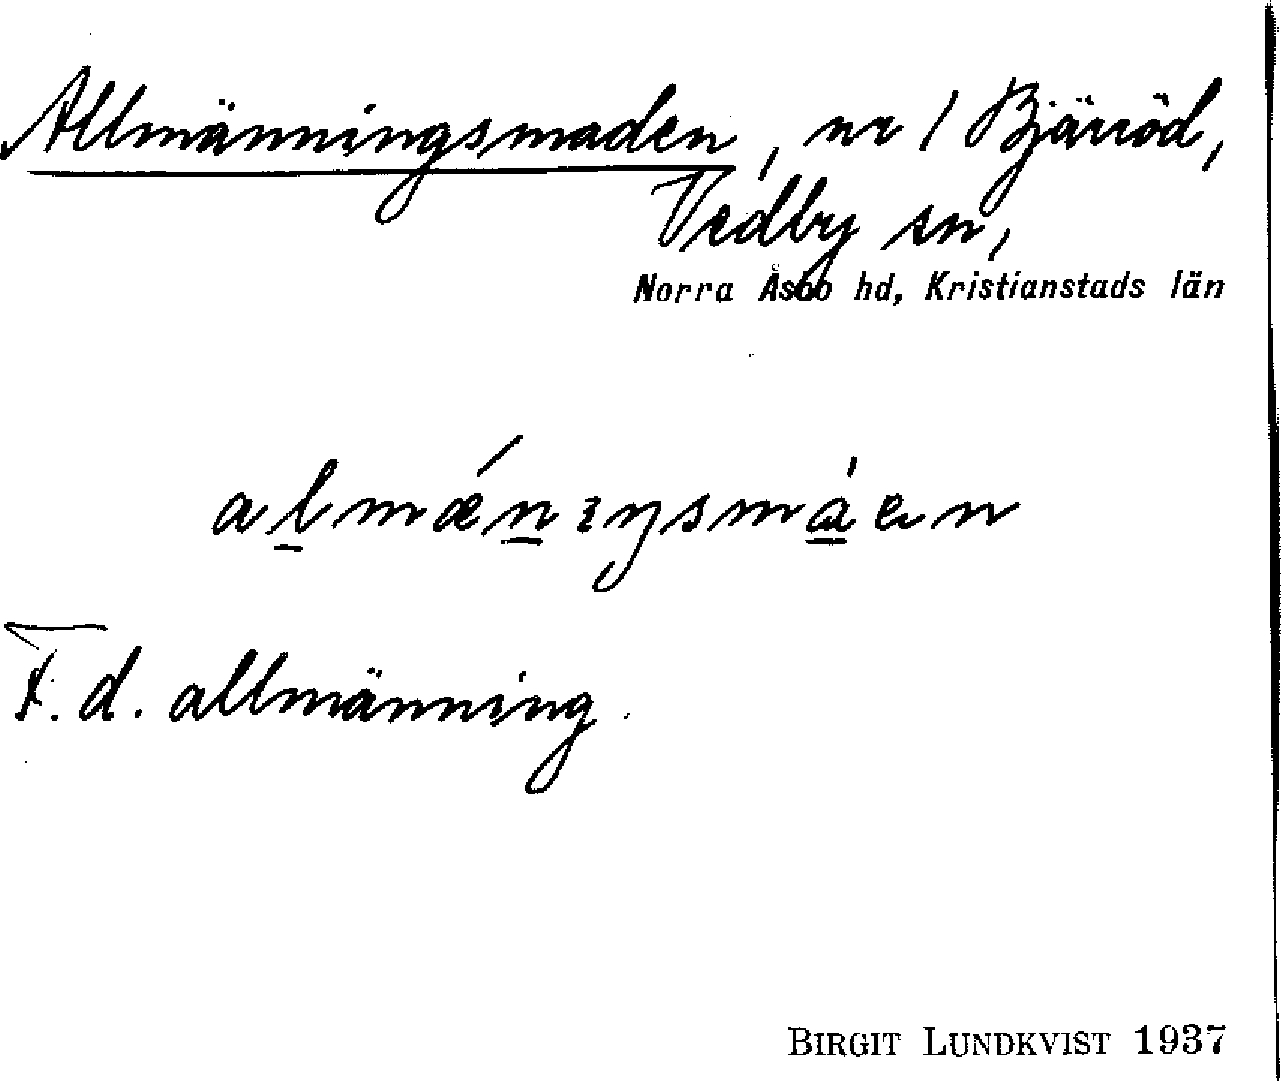 Allmänningsmaden, nr 1 Bjärröd,
Vedby sn,
Norra Åsbo hd, Kristianstads län
almǽnıŋsmáen
F.d. allmänning.
BIRGIT LUNDKVIST 1937